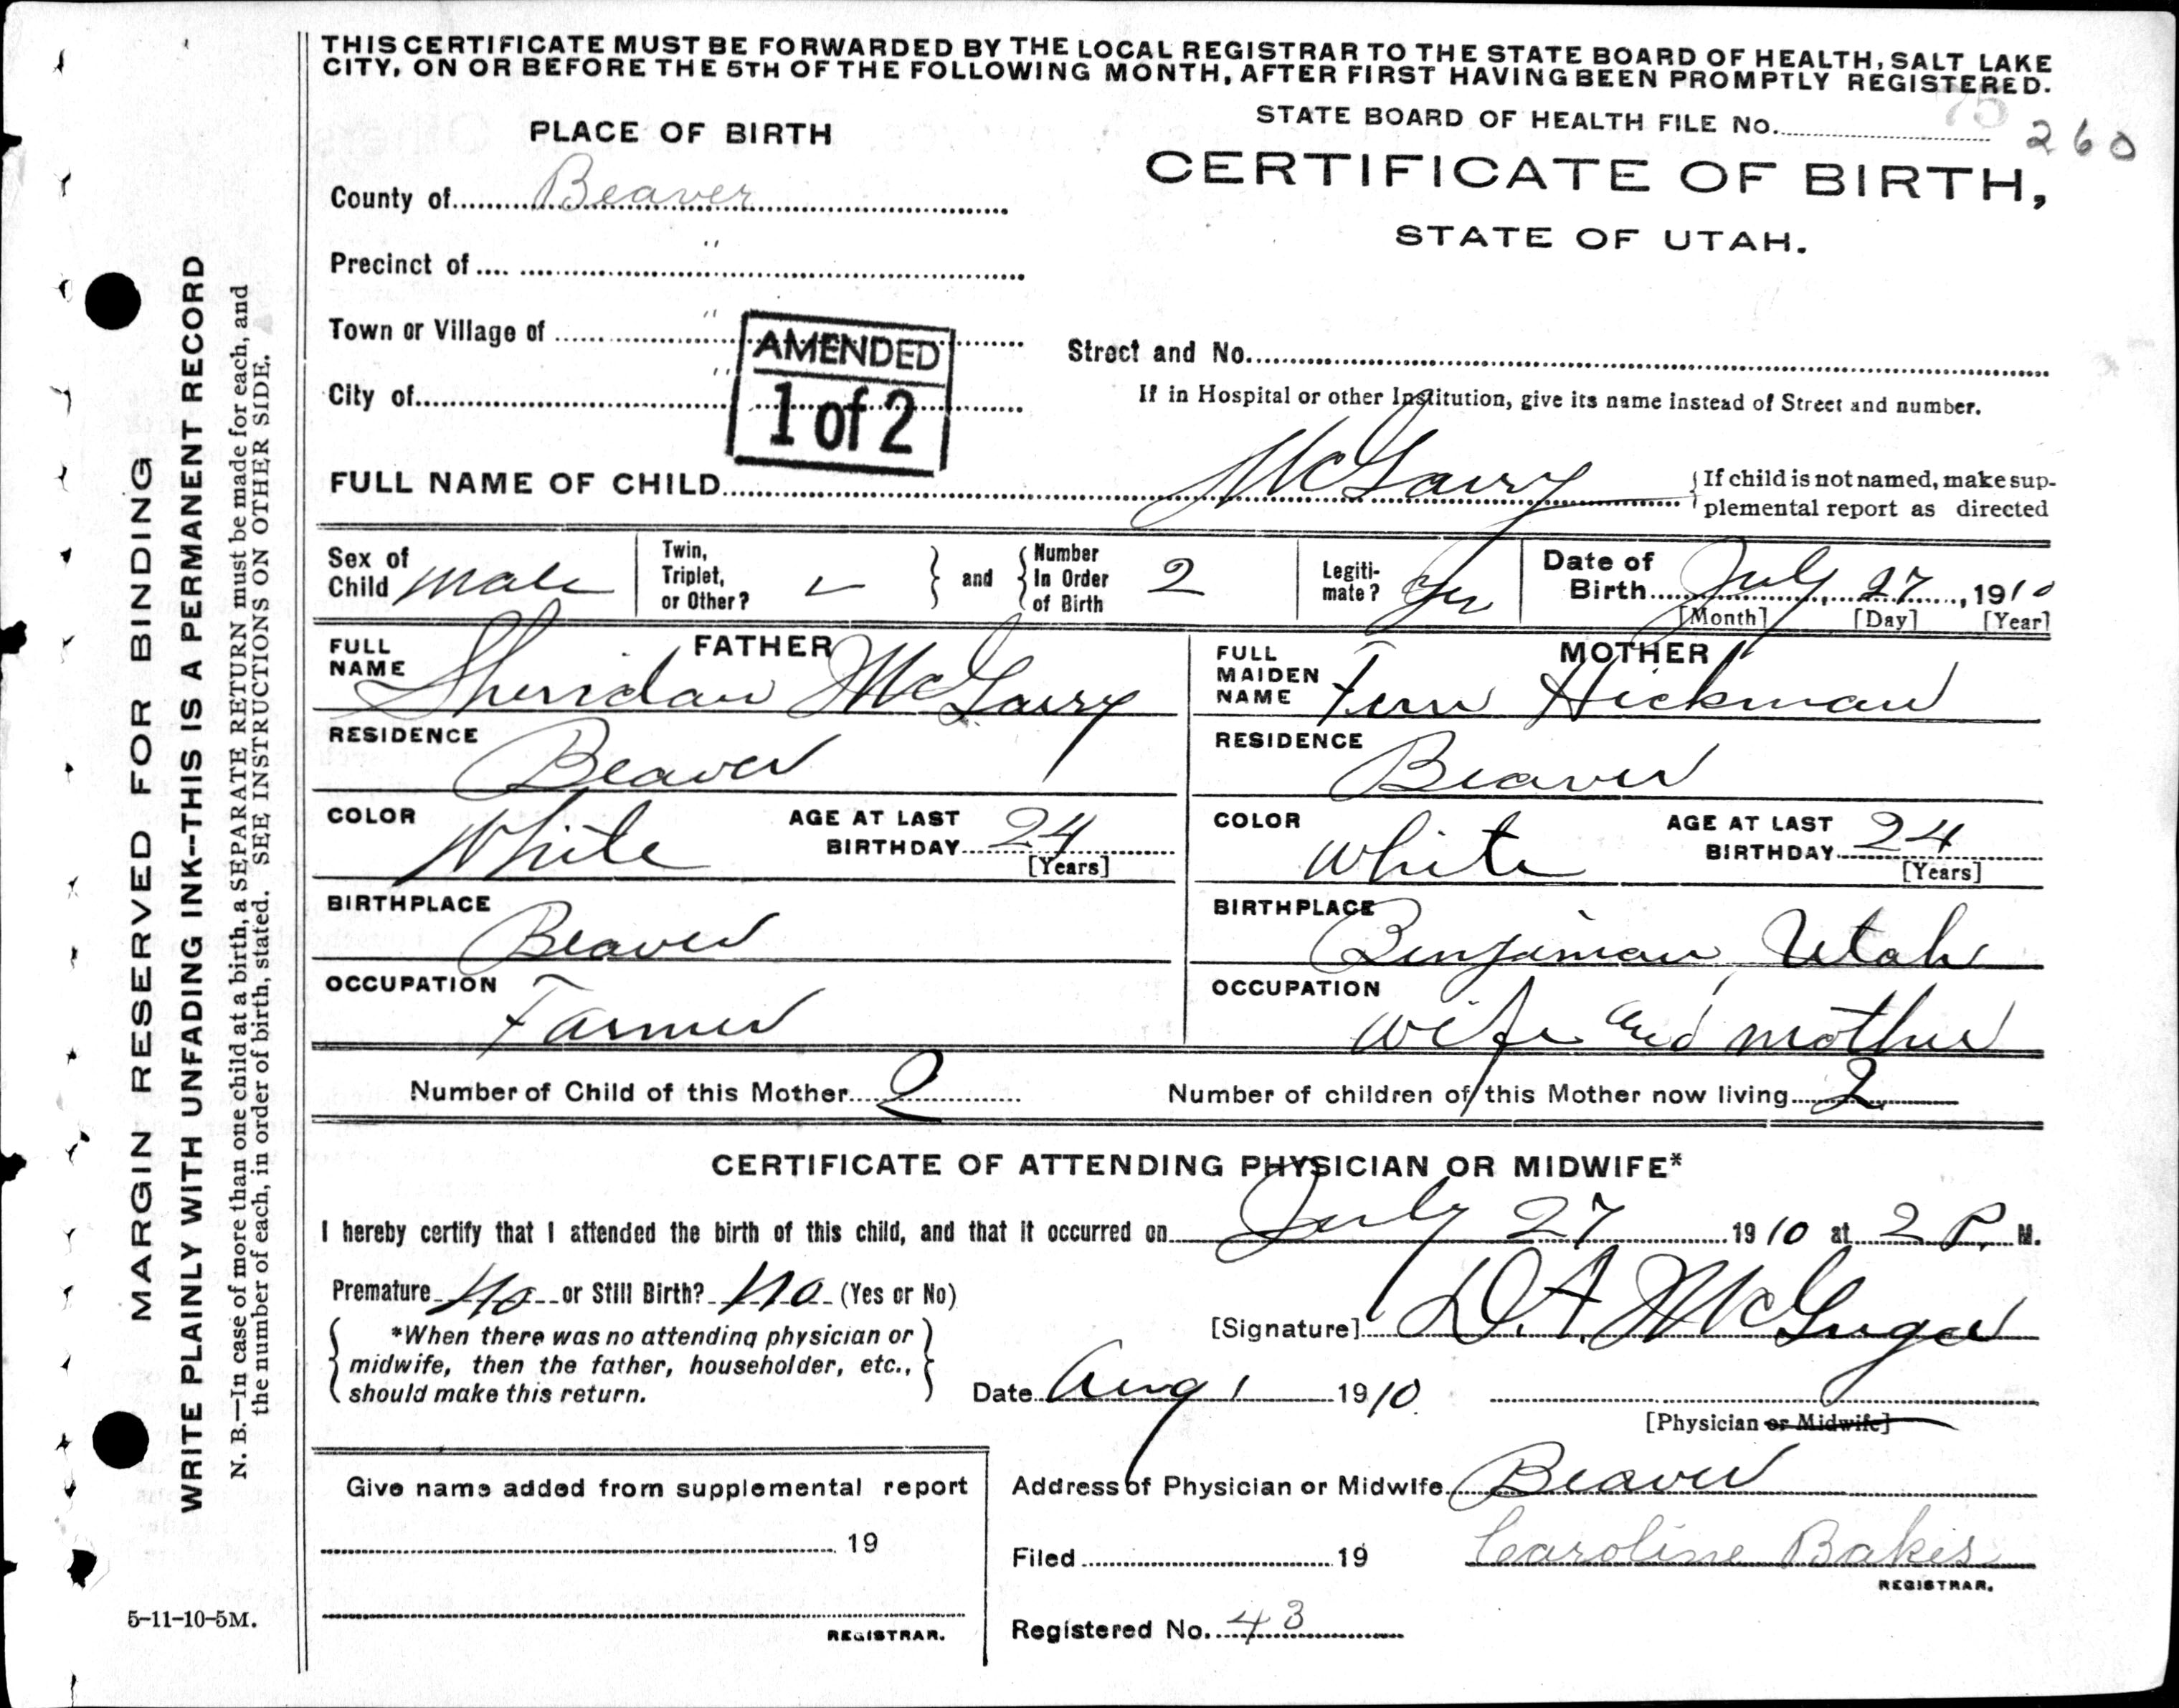 THIS CERTIFICATE MUST BE FORWARDED BY THE LOCAL REGISTRAR TO THE STATE BOARD OF HEALTH, SALT LAKE
CITY, ON OR BEFORE THE 5TH OF THE FOLLOWING MONTH, AFTER FIRST HAVING BEEN PROMPTLY REGISTERED.
STATE BOARD OF HEALTH FILE No. 75
260
PLACE OF BIRTH
CERTIFICATE OF BIRTH,
STATE OF UTAH.
County of Beaver
Precinct of "
Town or Village of "
City of "
AMENDED
1 of 2
Street and No.
If in Hospital or other Institution, give its name instead of Street and number.
FULL NAME OF CHILD McGarry
If child is not named, make sup-
plemental report as directed
Sex of Child Male
Twin, Triplet, or Other?
and
Number In Order of Birth 2
Legiti-mate? Yes
Date of Birth July 27, 1910
[Month] [Day] [Year]
FATHER
FULL NAME Sheridan McGarry
RESIDENCE Beaver
COLOR White
AGE AT LAST BIRTHDAY 24
[Years]
BIRTHPLACE Beaver
OCCUPATION Farmer
MOTHER
FULL MAIDEN NAME Fern Hickman
RESIDENCE Beaver
COLOR White
AGE AT LAST BIRTHDAY 24
[Years]
BIRTHPLACE Benjamin, Utah
OCCUPATION wife and mother
Number of Child of this Mother 2
Number of children of this Mother now living 2
CERTIFICATE OF ATTENDING PHYSICIAN OR MIDWIFE*
I hereby certify that I attended the birth of this child, and that it occurred on July 27 1910 at 2 P. M.
Premature No or Still Birth? No (Yes or No)
*When there was no attending physician or
midwife, then the father, householder, etc.,
should make this return.
[Signature] D.A. McGregor
Date Aug 1 1910
[Physician or Midwife]
Give name added from supplemental report
19
REGISTRAR.
Address of Physician or Midwife Beaver
Filed 19
Caroline Bakes
REGISTRAR.
Registered No. 43
5-11-10-5M.
MARGIN RESERVED FOR BINDING
WRITE PLAINLY WITH UNFADING INK--THIS IS A PERMANENT RECORD
N. B.—In case of more than one child at a birth, a SEPARATE RETURN must be made for each, and
the number of each, in order of birth, stated. SEE INSTRUCTIONS ON OTHER SIDE.